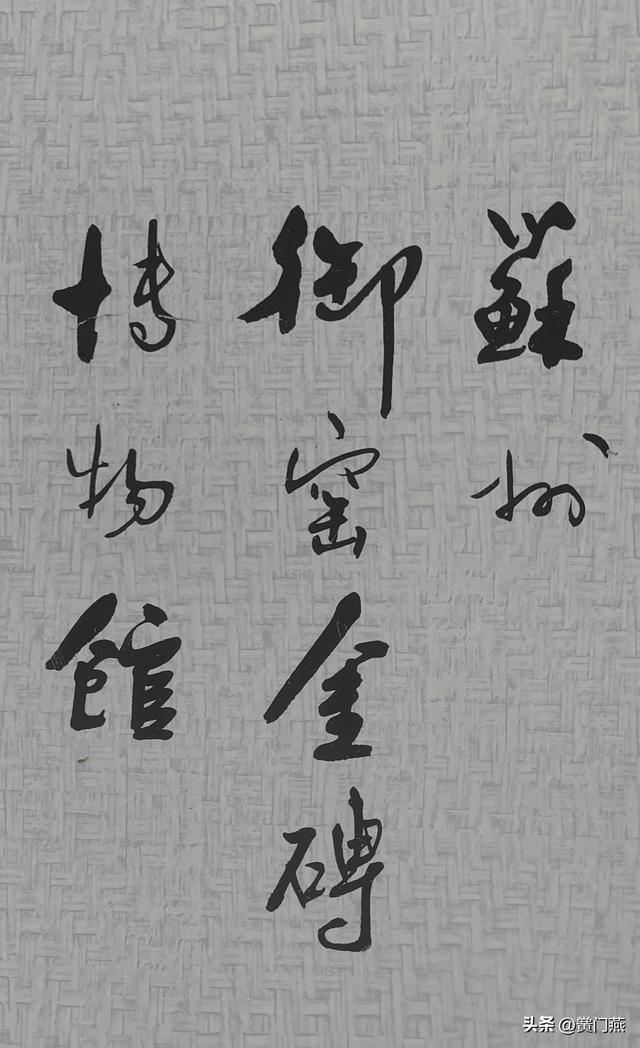 蘇州
御窑金磚
博物館
头条 @簧门燕